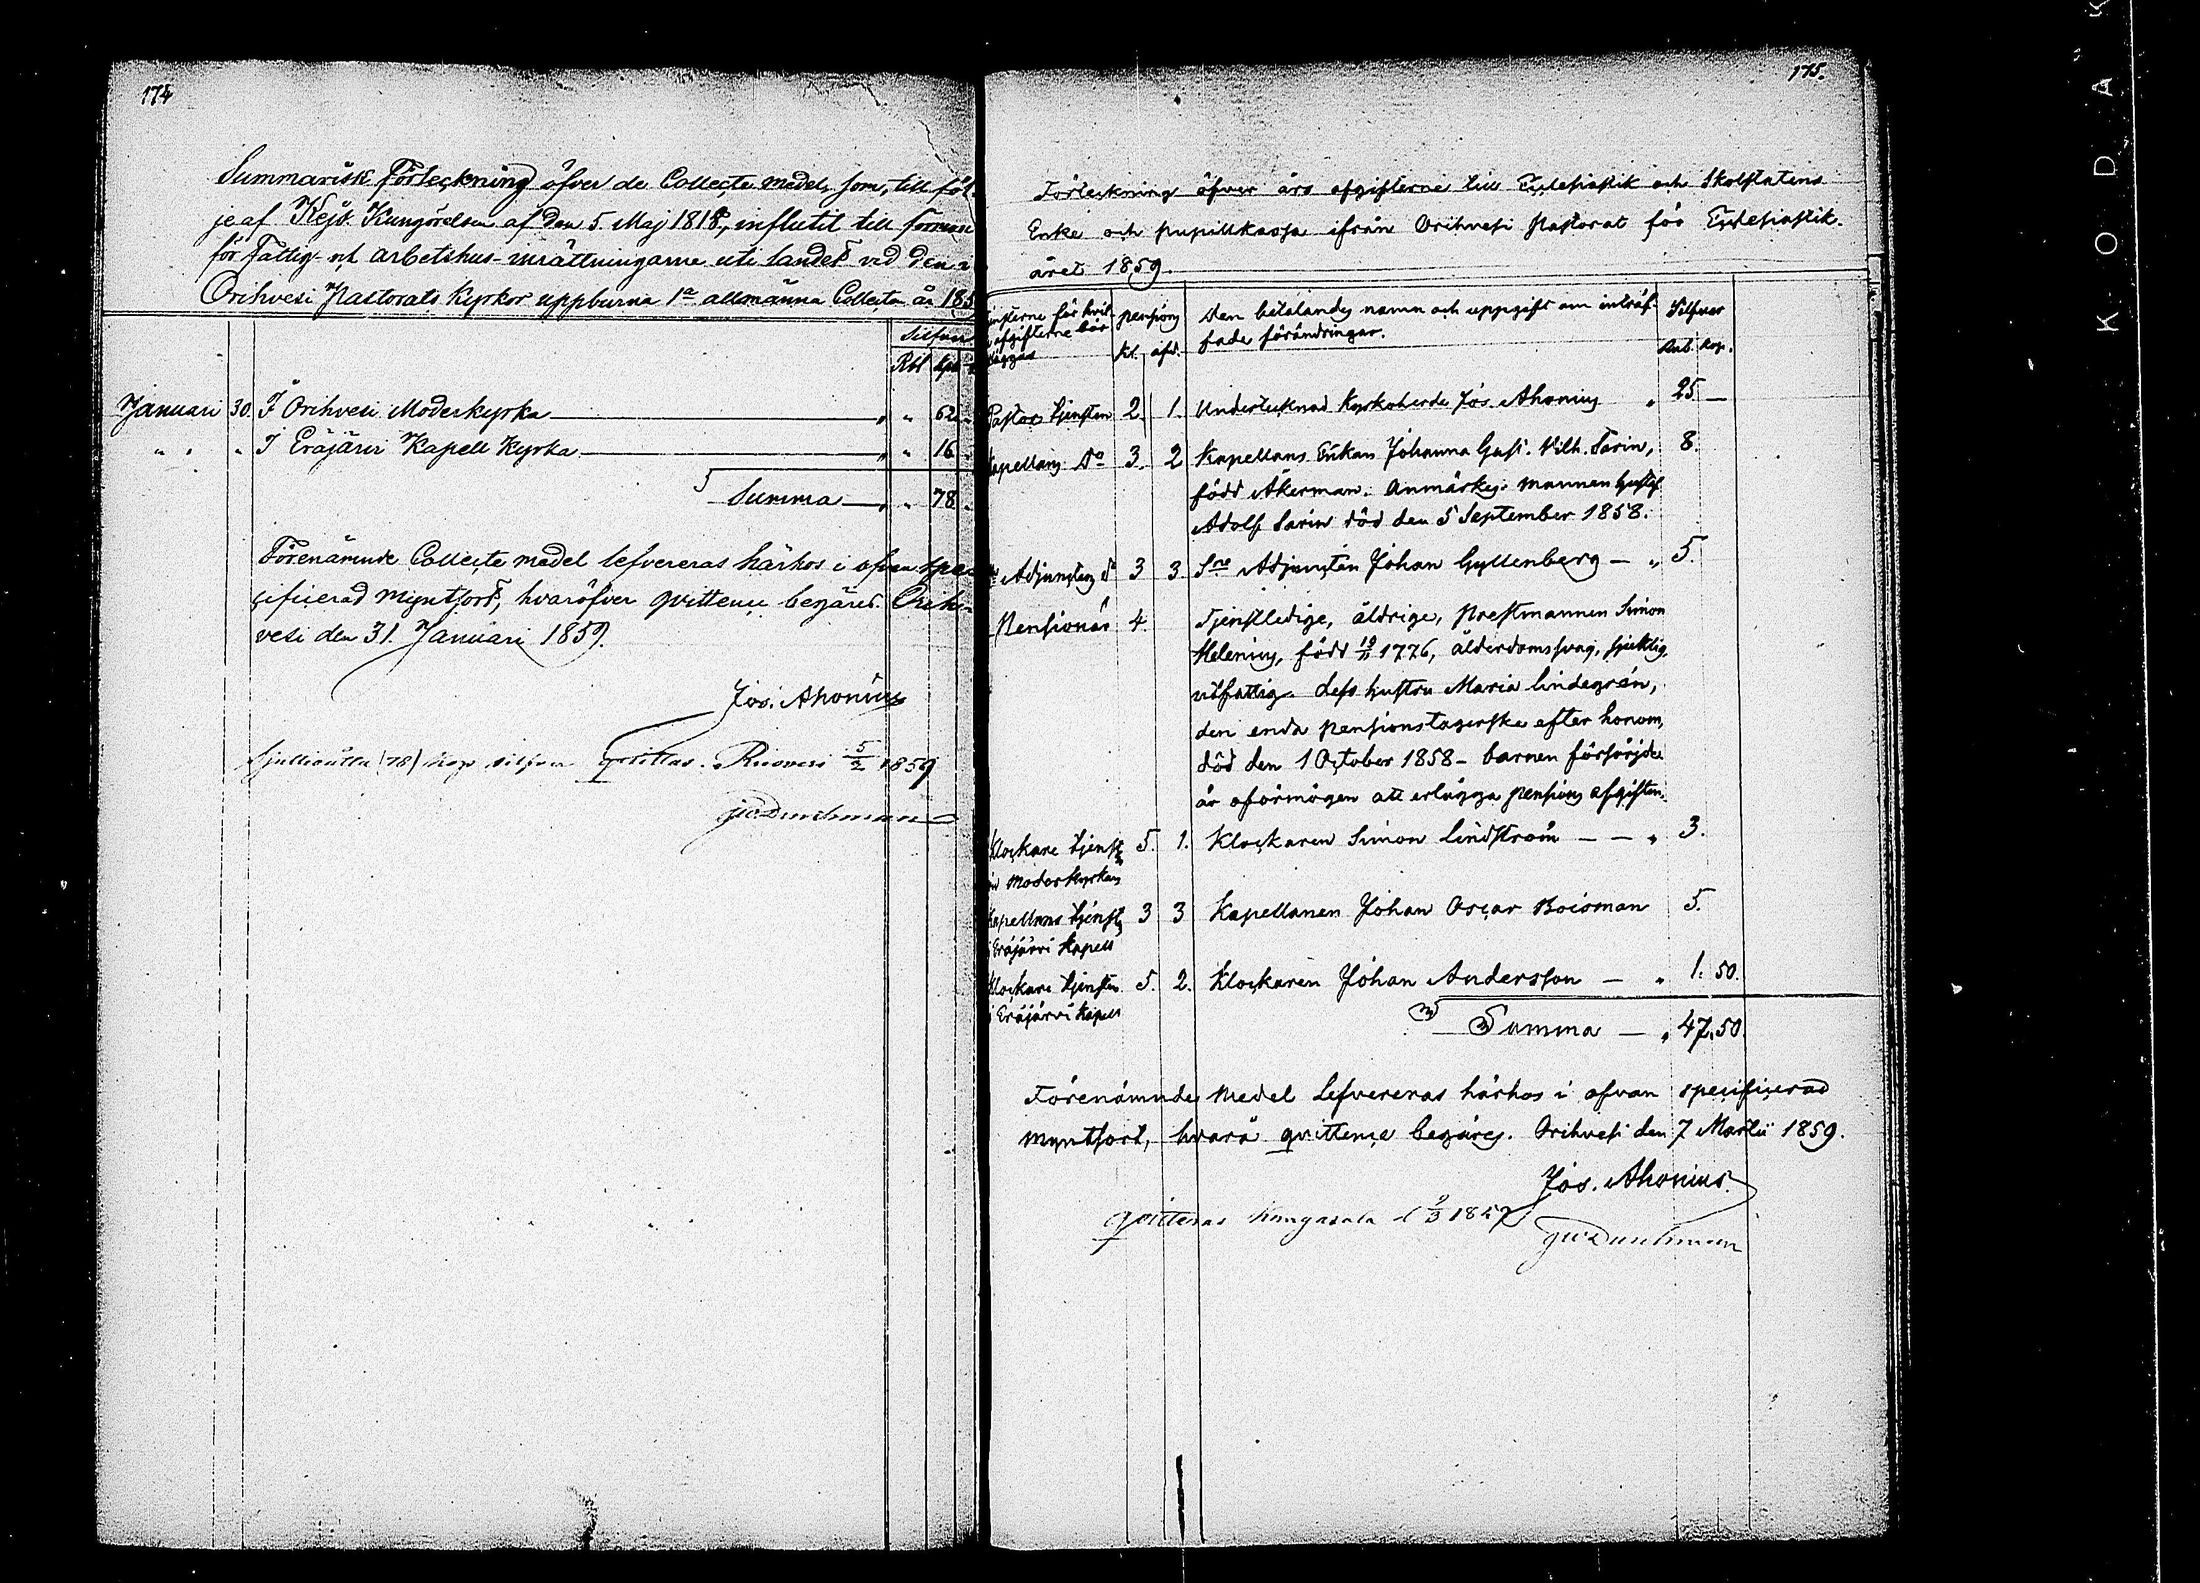 174
Summarisk Förteckning öfver de Collecte medel, som, till föl-
je af Kejs. Kungörelsen af den 5. Maj 1818, influtit till förmån
för Fattig- och arbetshus-inrättningarne uti landet vid den i
Orihvesi Pastorats Kyrkor uppburna 1a allmänna Collecten år 185
Silfver
Rbl Kop
Januari 30. I Orihvesi Moderkyrka — " " 62
" " " I Eräjärvi Kapell Kyrka — " " 16
Summa — " " 78
Förenämnde Collecte medel lefvereras härhos i ofvan spe-
cificerad myntsort, hvaröfver qvittence begäres. Orih-
vesi den 31. Januari 1859.
Jos. Ahonius
Sjuttioåtta (78) kop silfver qvitteras. Ruovesi 5/2 1859
175.
Förteckning öfver års afgifterne till Ecclesiastik och Skolstatens
Enke och pupillkassa ifrån Orihvesi Pastorat för Ecclesiastik-
året 1859.
Tjensterne för hvil-
ka afgifterne bör
läggas
pensions
Kl. afd.
Den betalandes namn och uppgift om inträf-
fade förändringar.
Silfver
Rub. Kop.
Pastors tjensten 2. 1. Undertecknad Kyrkoherde Jos. Ahonius " 25 —
Kapellans do 3. 2 Kapellans Enkan Johanna Gust. Vilh. Sarin, 8.
född Åkerman. Anmärkes: mannen Gustaf
Adolf Sarin död den 5 September 1858.
Adjunctens do 3 3. Adjuncten Johan Gyllenberg — " 5.
Pensionär 4. Tjenstledige, åldrige, prestmannen Simon
Helenius, född 19/11 1776, ålderdomssvag, sjuklig,
utfattig. dess hustru Maria Lindegrén,
den enda pensionstagerska efter honom,
död den 1 October 1858 - barnen försörjde
är oförmögen att erlägga pensions afgiften.
Klockare tjensten 5. 1. Klockaren Simon Lindström — — " 3.
vid Moderkyrkan
Kapellans tjensten 3 3 Kapellanen Johan Oscar Roisman 5.
i Eräjärvi Kapell
Klockare tjensten 5. 2. Klockaren Johan Andersson — " 1. 50.
i Eräjärvi Kapell
Summa — " 47. 50.
Förenämnde Medel Lefvereras härhos i ofvan specificerad
myntsort, hvarå qvittence begäres. Orihvesi den 7 Martii 1859.
Jos. Ahonius.
qvitteras Kangasala d 9/3 1859
KODAK